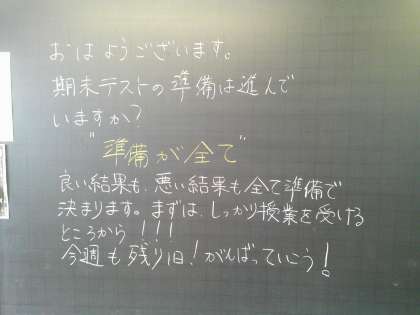 おはようございます。
期末テストの準備は進んで
いますか？
"準備が全て"
良い結果も、悪い結果も全て準備で
決まります。まずは、しっかり授業を受ける
ところから！！！
今週も残り1日！がんばっていこう！